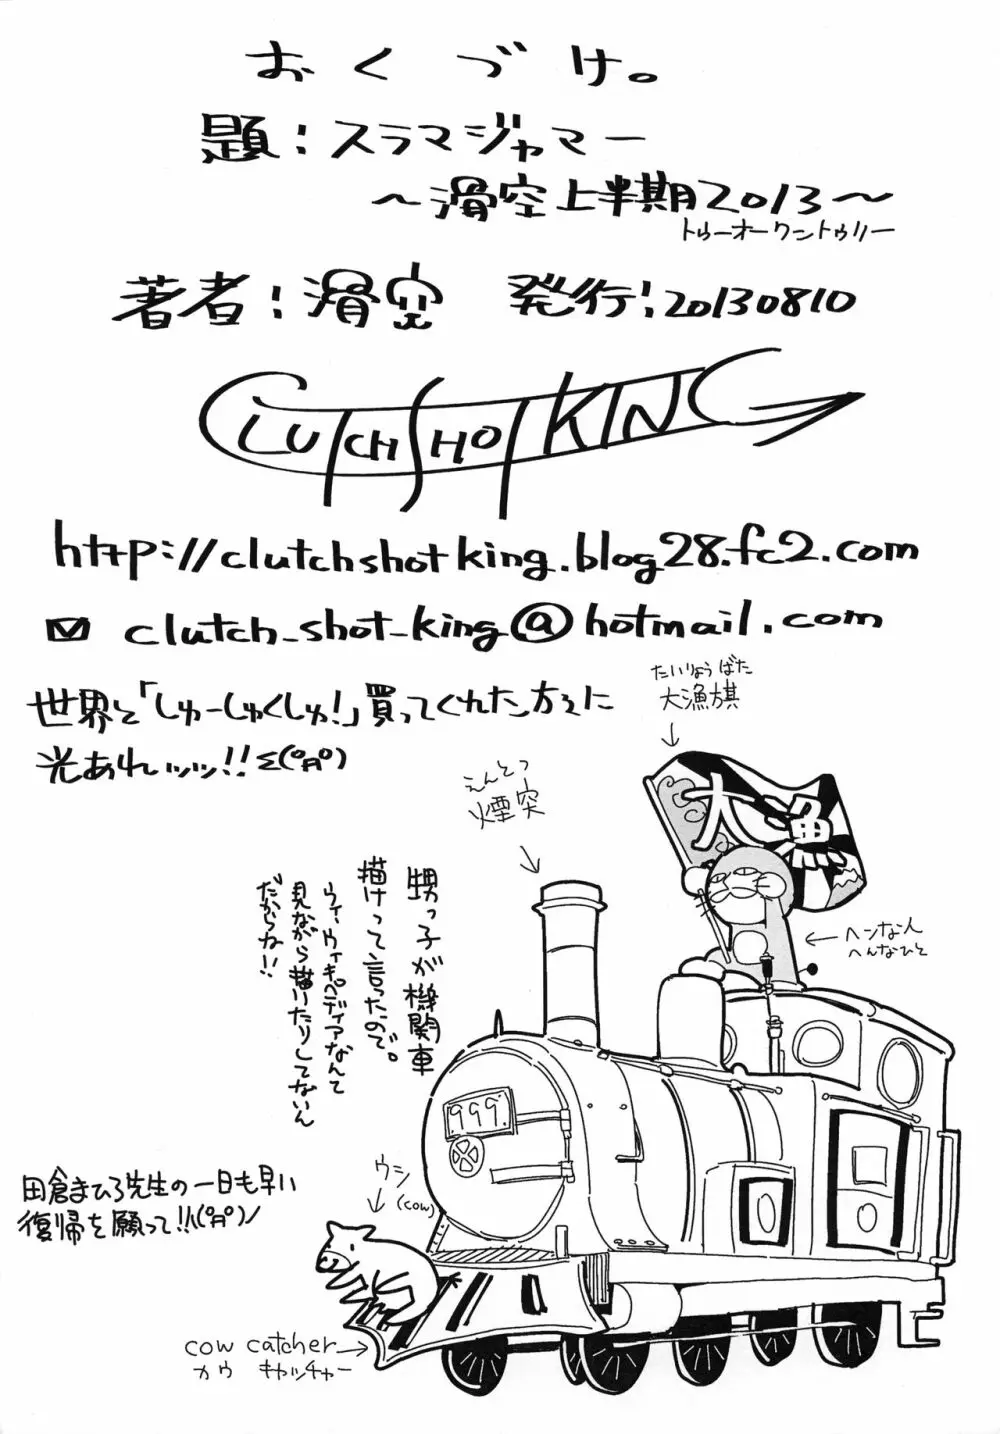 おくづけ。
題：スラマジャマー
～滑空上半期2013～
トゥーオーワントゥリー
著者：滑空　発行：20130810
CLUTCH SHOT KING
http://clutchshotking.blog28.fc2.com
clutch_shot_king@hotmail.com
世界と「しゅーしゅくしゅ!」買ってくれた方々に
光あれィッッ!!Σ(°Д°)
たいりょうばた
大漁旗
えんとつ
煙突
大漁
ヘンな人
へんなひと
甥っ子が機関車
描けって言ったので。
ウィ、ウィキペディアなんて
見ながら描いたりしてないん
だからね!!
999
田倉まひろ先生の一日も早い
復帰を願って!!\(°Д°)ノ
ウシ
(cow)
cow catcher
カウ キャッチャー